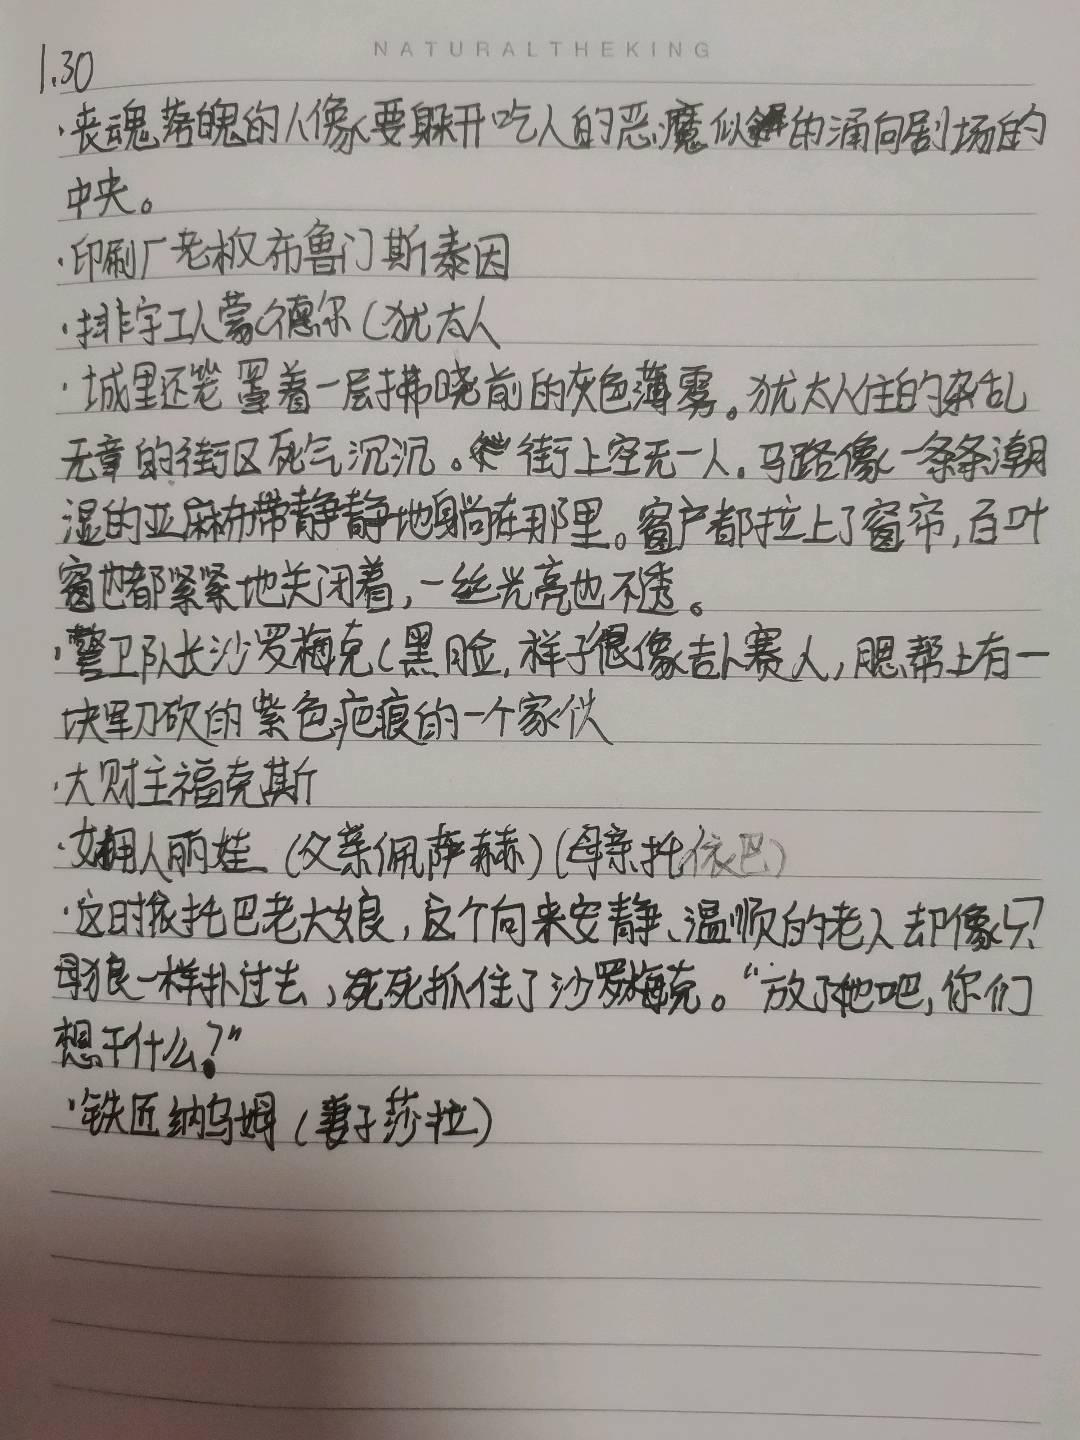 NATURALTHEKING
1.30
·丧魂落魄的人像要躲开吃人的恶魔似的涌向剧场的
中央。
·印刷厂老板布鲁门斯泰因
·排字工人蒙德尔(犹太人
·城里还笼罩着一层拂晓前的灰色薄雾。犹太人住的杂乱
无章的街区死气沉沉。街上空无一人.马路像一条条潮
湿的亚麻布带静静地躺在那里。窗户都拉上了窗帘,百叶
窗也都紧紧地关闭着,一丝光亮也不透。
·警卫队长沙罗梅克(黑脸,样子很像吉卜赛人,腮帮上有一
块军刀砍的紫色疤痕的一个家伙
·大财主福克斯
·女佣人丽娃(父亲佩萨赫)(母亲托依巴)
·这时候托巴老大娘,这个向来安静、温顺的老人却像只
母狼一样扑过去,死死抓住了沙罗梅克。“放了他吧,你们
想干什么?”
·铁匠纳乌姆(妻子莎拉)